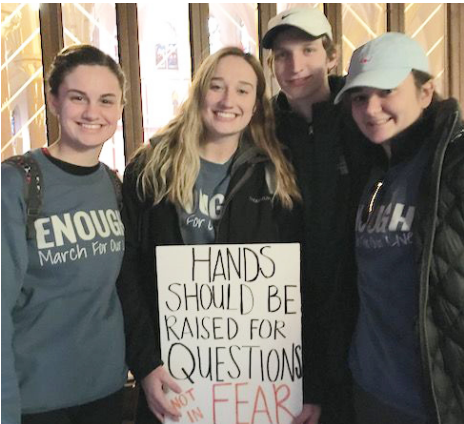 ENOUGH
March For Our
ENOUGH
March For
OUGH
HANDS
SHOULD BE
RAISED FOR
QUESTIONS
NOT
IN FEAR